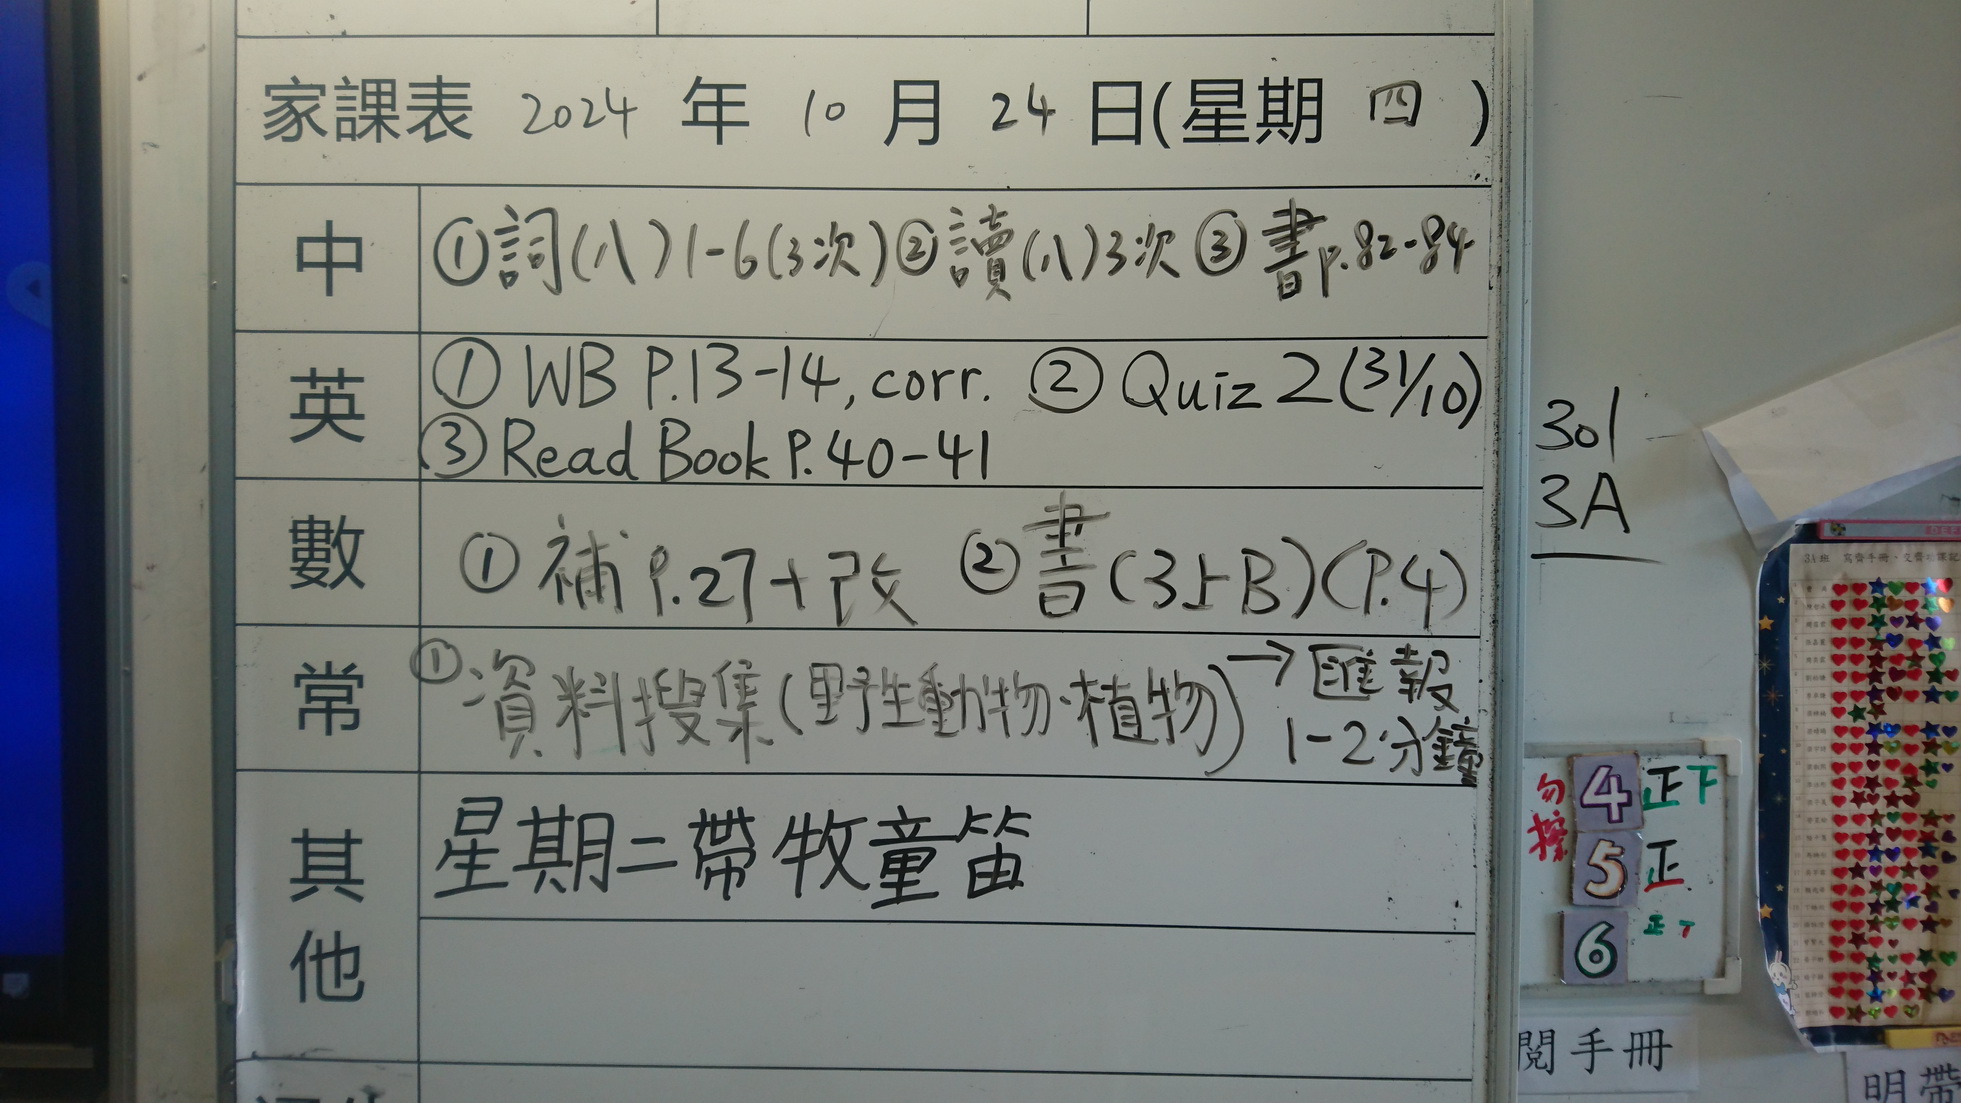 家課表 2024 年 10 月 24 日(星期 四 )
中
①詞(八)1-6(3次)②讀(八)3次 ③書p.82-84
英
① WB P.13-14, corr. ② Quiz 2 (31/10)
③ Read Book P.40-41
數
① 補 P.27+改 ②書(3上B)(P.4)
常
①資料搜集(野生動物、植物)→匯報
1-2分鐘
其他
星期二帶牧童笛
301
3A
勿擦
4 正下
5 正
6 正
閱手冊
明帶